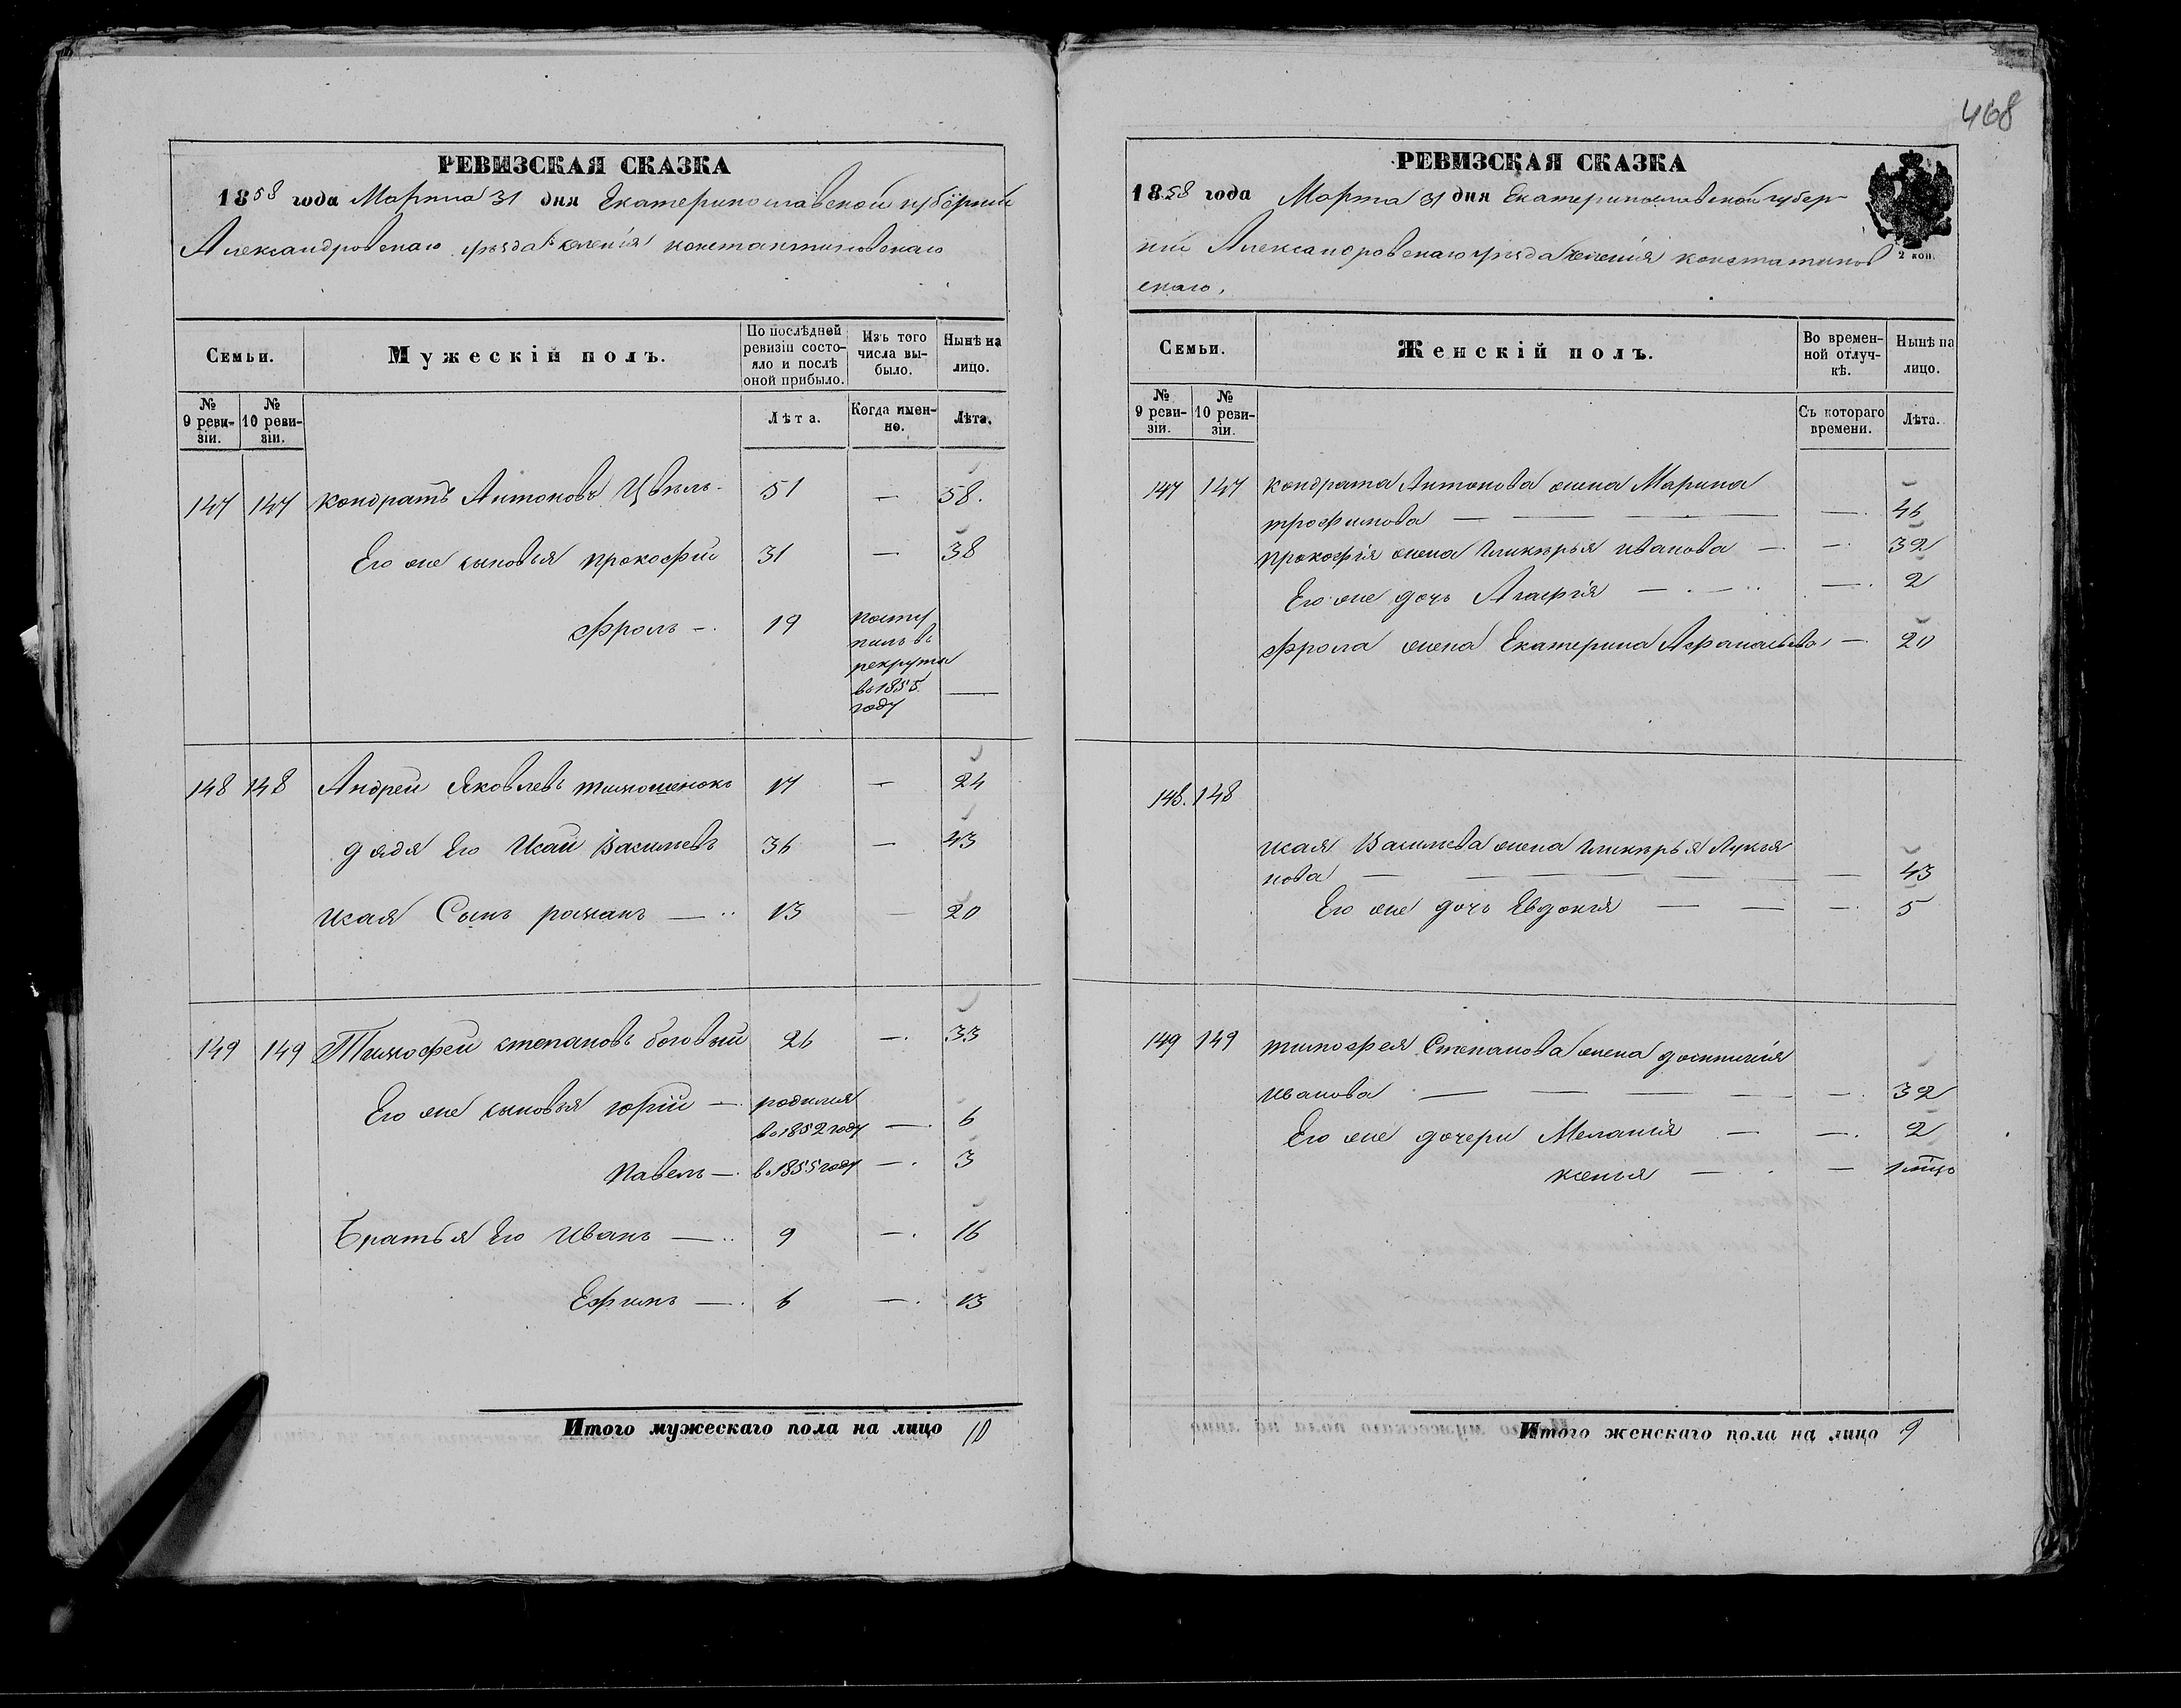 468
РЕВИЗСКАЯ СКАЗКА
1858 года Марта 31 дня Екатеринославской губерніи
Александровскаго уѣзда селенія константиновскаго
Семьи.
Мужескій полъ.
По послѣдней ревизіи состояло и послѣ оной прибыло.
Изъ того числа выбыло.
Нынѣ на лицо.
№ 9 ревизіи.
№ 10 ревизіи.
Лѣта.
Когда именно.
Лѣта.
147 147 кондратъ Антоновъ 51 — 58.
Его же сыновья прокофій 31 — 38
Фролъ —. 19 посту
пилъ въ
рекруты
въ 1855 —
году
148 148 Андрей Яковлевъ тимошенокъ 17 — 24
дядя Его Исай Васильевъ 36 — 43
исая Сынъ романъ — 13 20
149 149 Тимофей степановъ боговый 26 —. 33
Его же сыновья юрій — родился
въ 1852 году —. 6
павелъ —. въ 1855 году —. 3
Братья Его иванъ — 9 —. 16
Ефимъ —. 6 —. 13
Итого мужескаго пола на лицо 10
РЕВИЗСКАЯ СКАЗКА
1858 года Марта 31 дня Екатеринославской губер-
ніи Александровскаго уѣзда селенія констатинов
скаго,
2 коп.
Семьи.
Женскій полъ.
Во временной отлучкѣ.
Нынѣ на лицо.
№ 9 ревизіи.
№ 10 ревизіи.
Съ котораго времени.
Лѣта.
147 147 кондрата Антонова жена Марина
трофимова — — — —. 46
прокофія жена гликѣрья иванова — —. 32
Его же дочь Агафія — —. 2
фрола жена Екатерина Афанасьева — 20
148. 148
исая Васильева жена гликѣрья Лукья
нова — — — — — 43
Его же дочь Евдокія — — —. 5
149 149 тимофея Степанова жена
иванова — — — — —. 32
Его же дочери Меланія — —. 2
ксенья — — 1 мѣсц
Итого женскаго пола на лицо 9